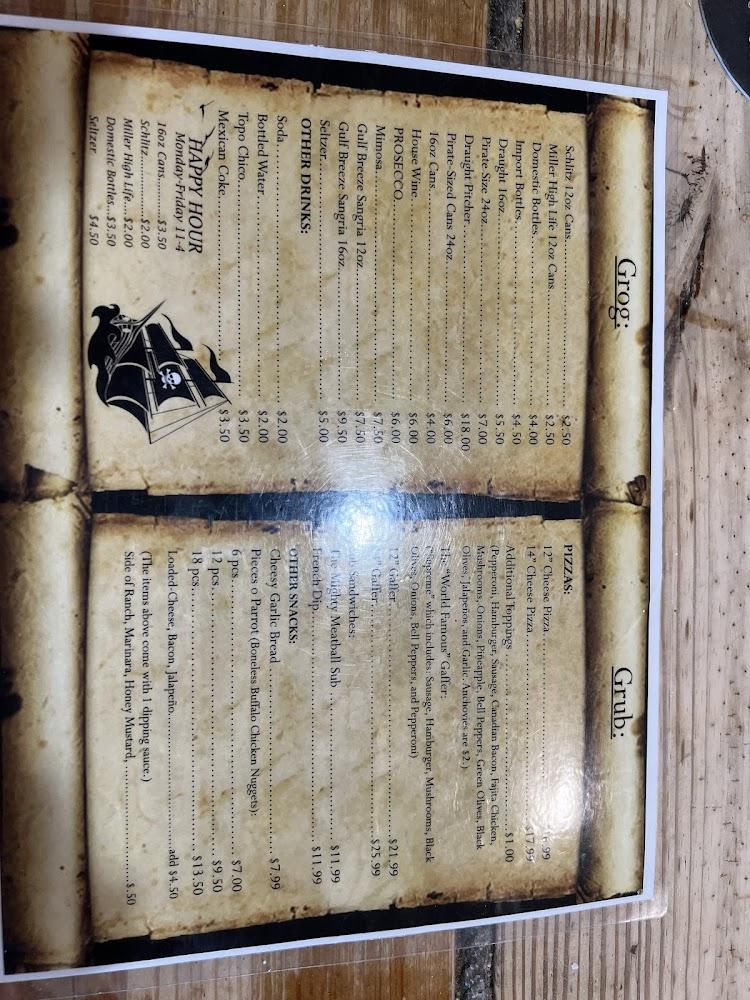 Grog:
Schlitz 12oz Cans $2.50
Miller High Life 12oz Cans $2.50
Domestic Bottles $4.00
Import Bottles $4.50
Draught 16oz $5.50
Pirate Size 24oz $7.00
Draught Pitcher $18.00
Pirate-Sized Cans 24oz $6.00
16oz Cans $4.00
House Wine $6.00
PROSECCO $6.00
Mimosa $7.50
Gulf Breeze Sangria 12oz $7.50
Gulf Breeze Sangria 16oz $9.50
Seltzer $5.00
OTHER DRINKS:
Soda $2.00
Bottled Water $2.00
Topo Chico $3.50
Mexican Coke $3.50
HAPPY HOUR
Monday-Friday 11-4
16oz Cans $3.50
Schlitz $2.00
Miller High Life $2.00
Domestic Bottles $3.50
Seltzer $4.50
Grub:
PIZZAS:
12" Cheese Pizza 6.99
14" Cheese Pizza $17.99
Additional Toppings $1.00
(Pepperoni, Hamburger, Sausage, Canadian Bacon, Fajita Chicken,
Mushrooms, Onions, Pineapple, Bell Peppers, Green Olives, Black
Olives, Jalapeños, and Garlic. Anchovies are $2.)
The "World Famous" Gaffer:
("Supreme" which includes: Sausage, Hamburger, Mushrooms, Black
Olives, Onions, Bell Peppers, and Pepperoni)
12" Gaffer $21.99
Gaffer $25.99
Sandwiches:
The Mighty Meatball Sub $11.99
French Dip $11.99
OTHER SNACKS:
Cheesy Garlic Bread $7.99
Pieces o Parrot (Boneless Buffalo Chicken Nuggets):
6 pcs $7.00
12 pcs $9.50
18 pcs $13.50
Loaded-Cheese, Bacon, Jalapeño add $4.50
(The items above come with 1 dipping sauce.)
Side of Ranch, Marinara, Honey Mustard, $.50